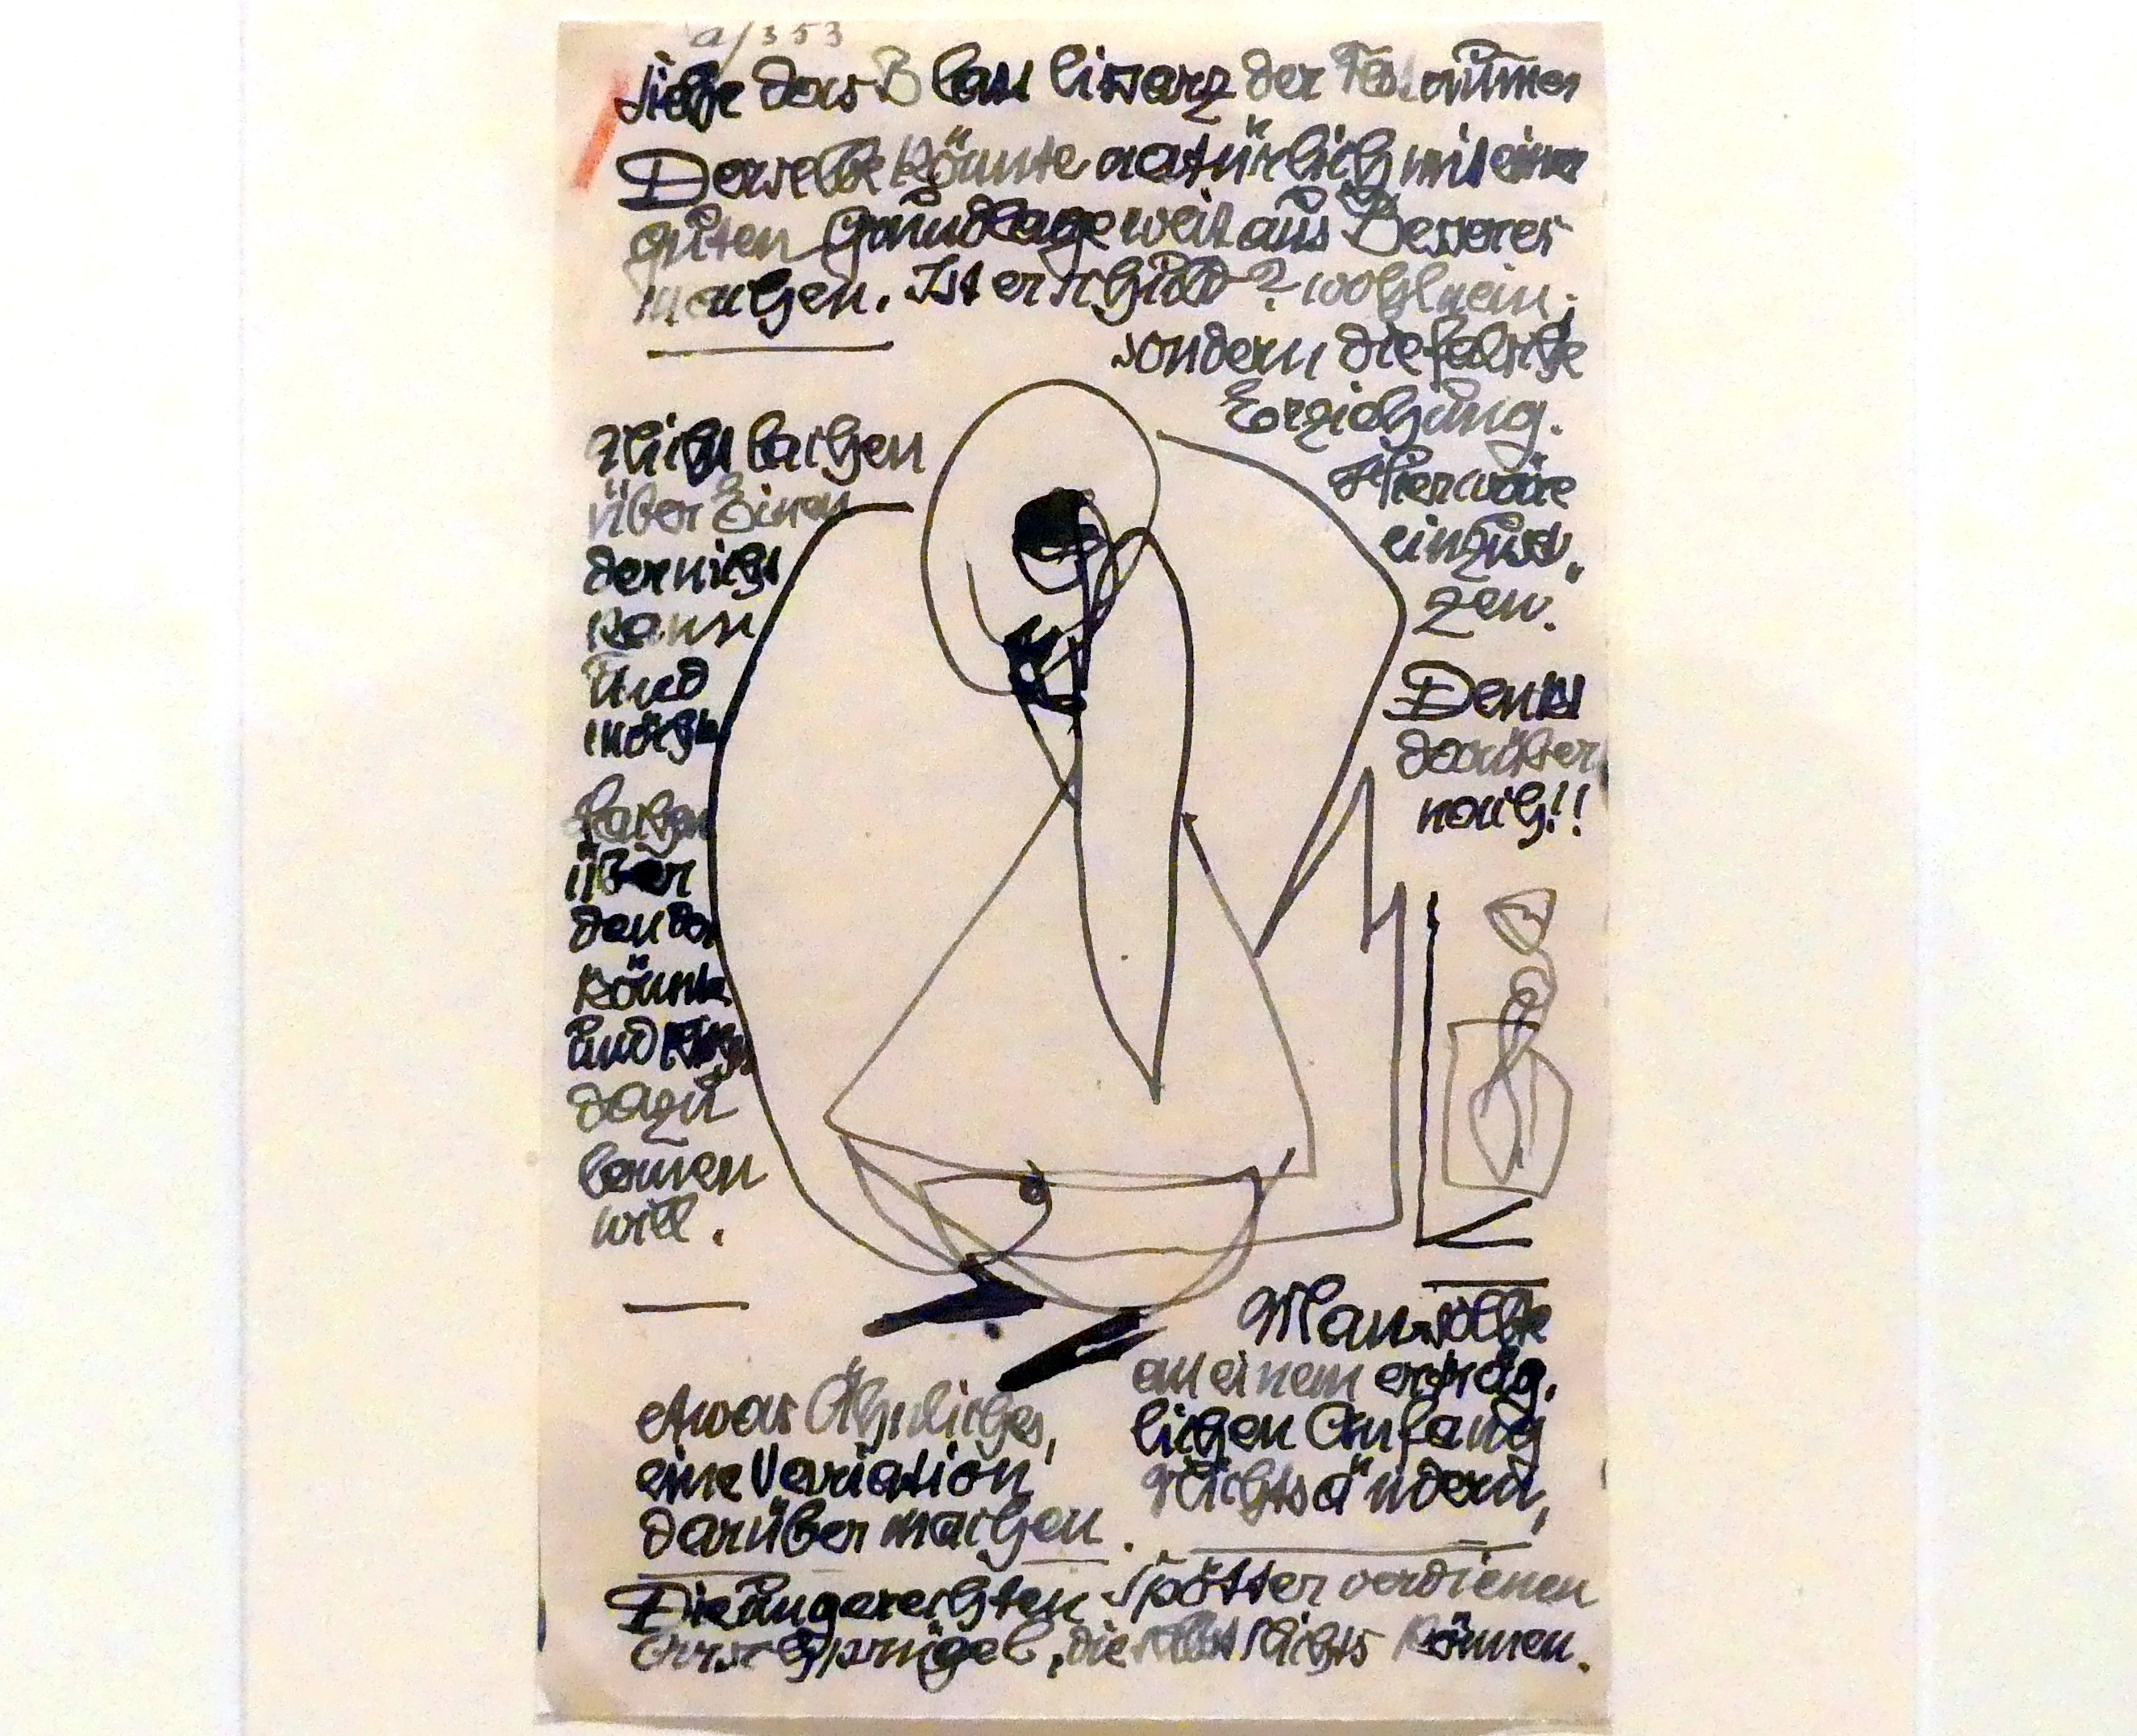 a/353
Siehe das Blau liszarz der
Derselbe könnte natürlich mit einer
guten Grundlage weit aus Besseres
machen. Ist er schuld? wohl nein;
sondern die falsche
Erziehung.
Hier wäre
einzuset„
zen.
Denkt
darüber
nach!!
Nicht lachen
über Einen
der nicht
kann
und
möcht
Lachen
über
den der
könnte
und
dazu
lernen
will.
Man sollte
an einem erträg„
lichen Anfang
Nichts ändern,
etwas Ähnliches,
eine Variation
darüber machen.
Die ungerechten Spötter verdienen
Arschprügel, die selbst Nichts können.